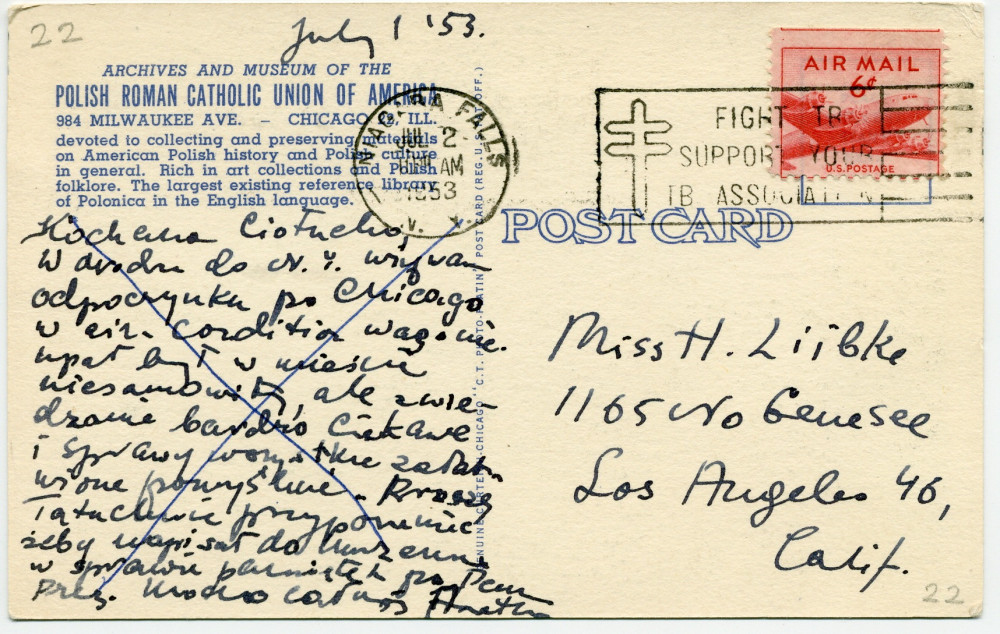 22
July 1 '53.
ARCHIVES AND MUSEUM OF THE
POLISH ROMAN CATHOLIC UNION OF AMERICA
984 MILWAUKEE AVE. – CHICAGO, ILL.
devoted to collecting and preserving materials
on American Polish history and Polish culture
in general. Rich in art collections and Polish
folklore. The largest existing reference library
of Polonica in the English language.
Kochana Ciotuchno,
W drodze do N.Y. używam
odpoczynku po Chicago
w air-condition wagonie.
upał był w mieście
niesamowity, ale zwie-
dzanie bardzo ciekawe
i sprawy wszystkie załat-
wione pomyślnie. Proszę
Tatuchnie przypomnieć
żeby napisał do Muzeum
w sprawie pamiątek po
Prez. Mocno całuję
NIAGARA FALLS
JUL 2
AM
1953
N. Y.
FIGHT TB
SUPPORT YOUR
TB ASSOCIATION
AIR MAIL
6¢
U.S. POSTAGE
POST CARD
GENUINE CURTEICH-CHICAGO "C.T. PHOTO-PLATIN" POST CARD (REG. U.S. PAT. OFF.)
Miss H. Liibke
1165 No Genesee
Los Angeles 46,
Calif.
22